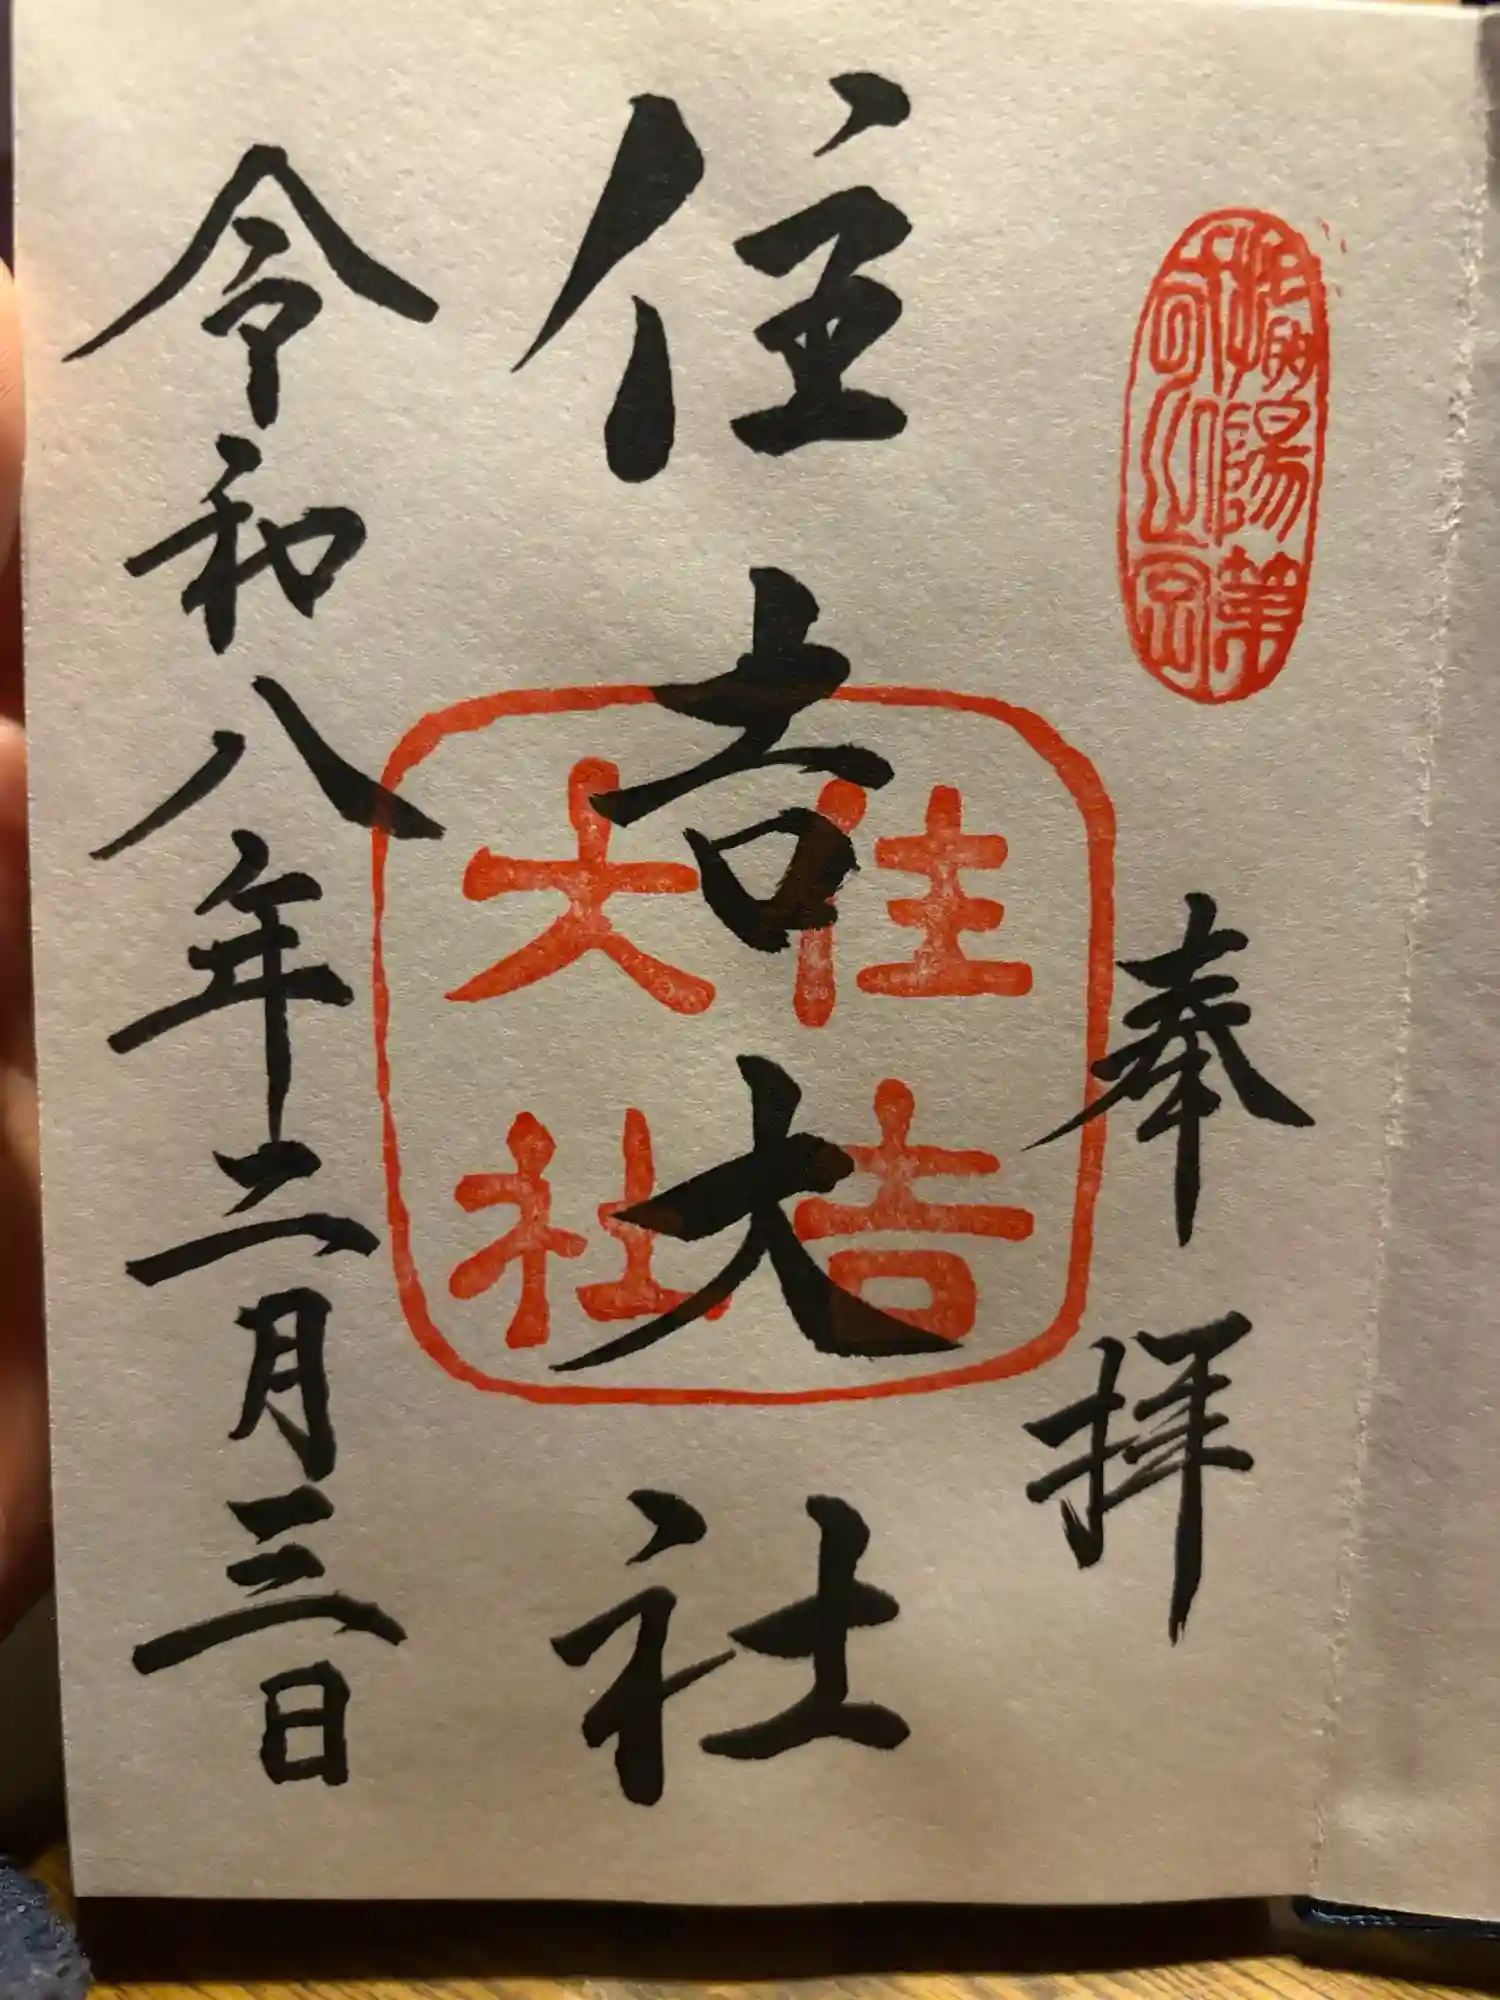 陽第
奉拝
住吉大社
住吉
大社
令和八年二月三日